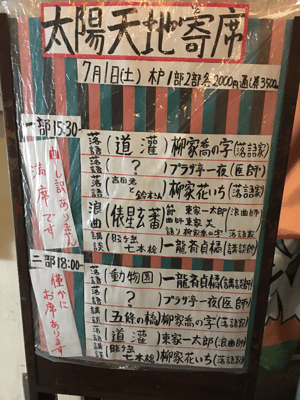 太陽天地寄席
7月1日(土) 木戸1部2部各2000円 通し券3500円
一部 15:30
申し訳ありません
満席です
落語(道灌)柳家喬の字(落語家)
落語(?)プラザ亭一夜(医師)
落語(吉田君と鈴木さん)柳家花いち(落語家)
浪曲(俵星玄蕃)
節 東家一太郎(浪曲師)
曲師 東家 美
語り 柳家喬の字(落語家)
講談(賤ヶ岳七本槍)一龍斎貞橘(講談師)
二部 18:00
僅かに
お席あります
落語(動物園)一龍斎貞橘(講談師)
落語(?)プラザ亭一夜(医師)
講談(五條の橋)柳家喬の字(落語家)
落語(道灌)東家一太郎(浪曲師)
講談(賤ヶ岳七本槍)柳家花いち(落語家)